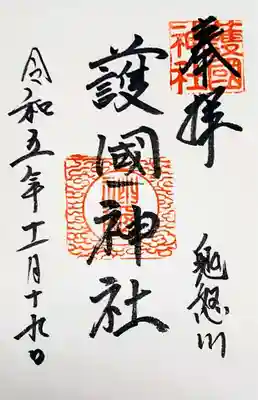 奉拝
護國神社
鬼怒川
護國神社
令和五年十一月十九日